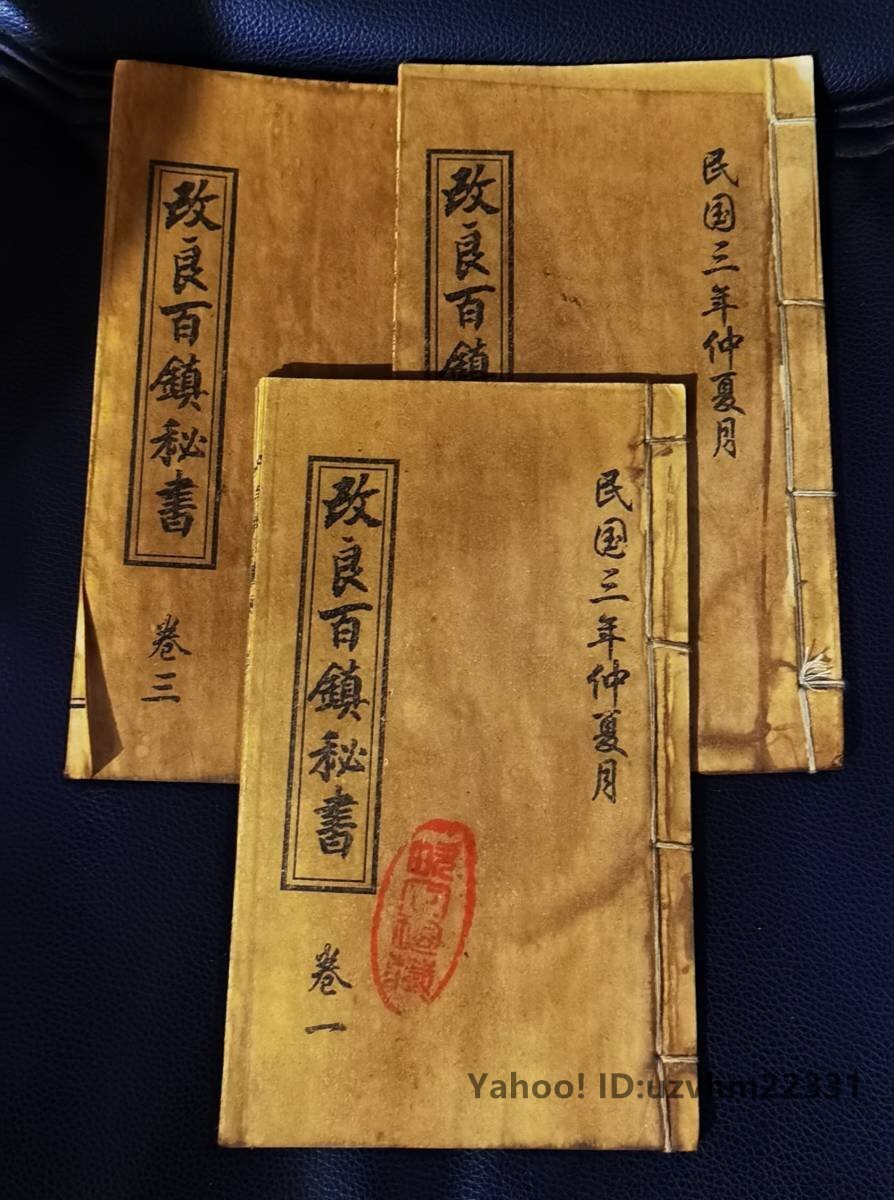 改良百鎮秘書
卷三
民国三年仲夏月
改良百鎮
民国三年仲夏月
改良百鎮秘書
卷一
Yahoo! ID:uzvhm22331